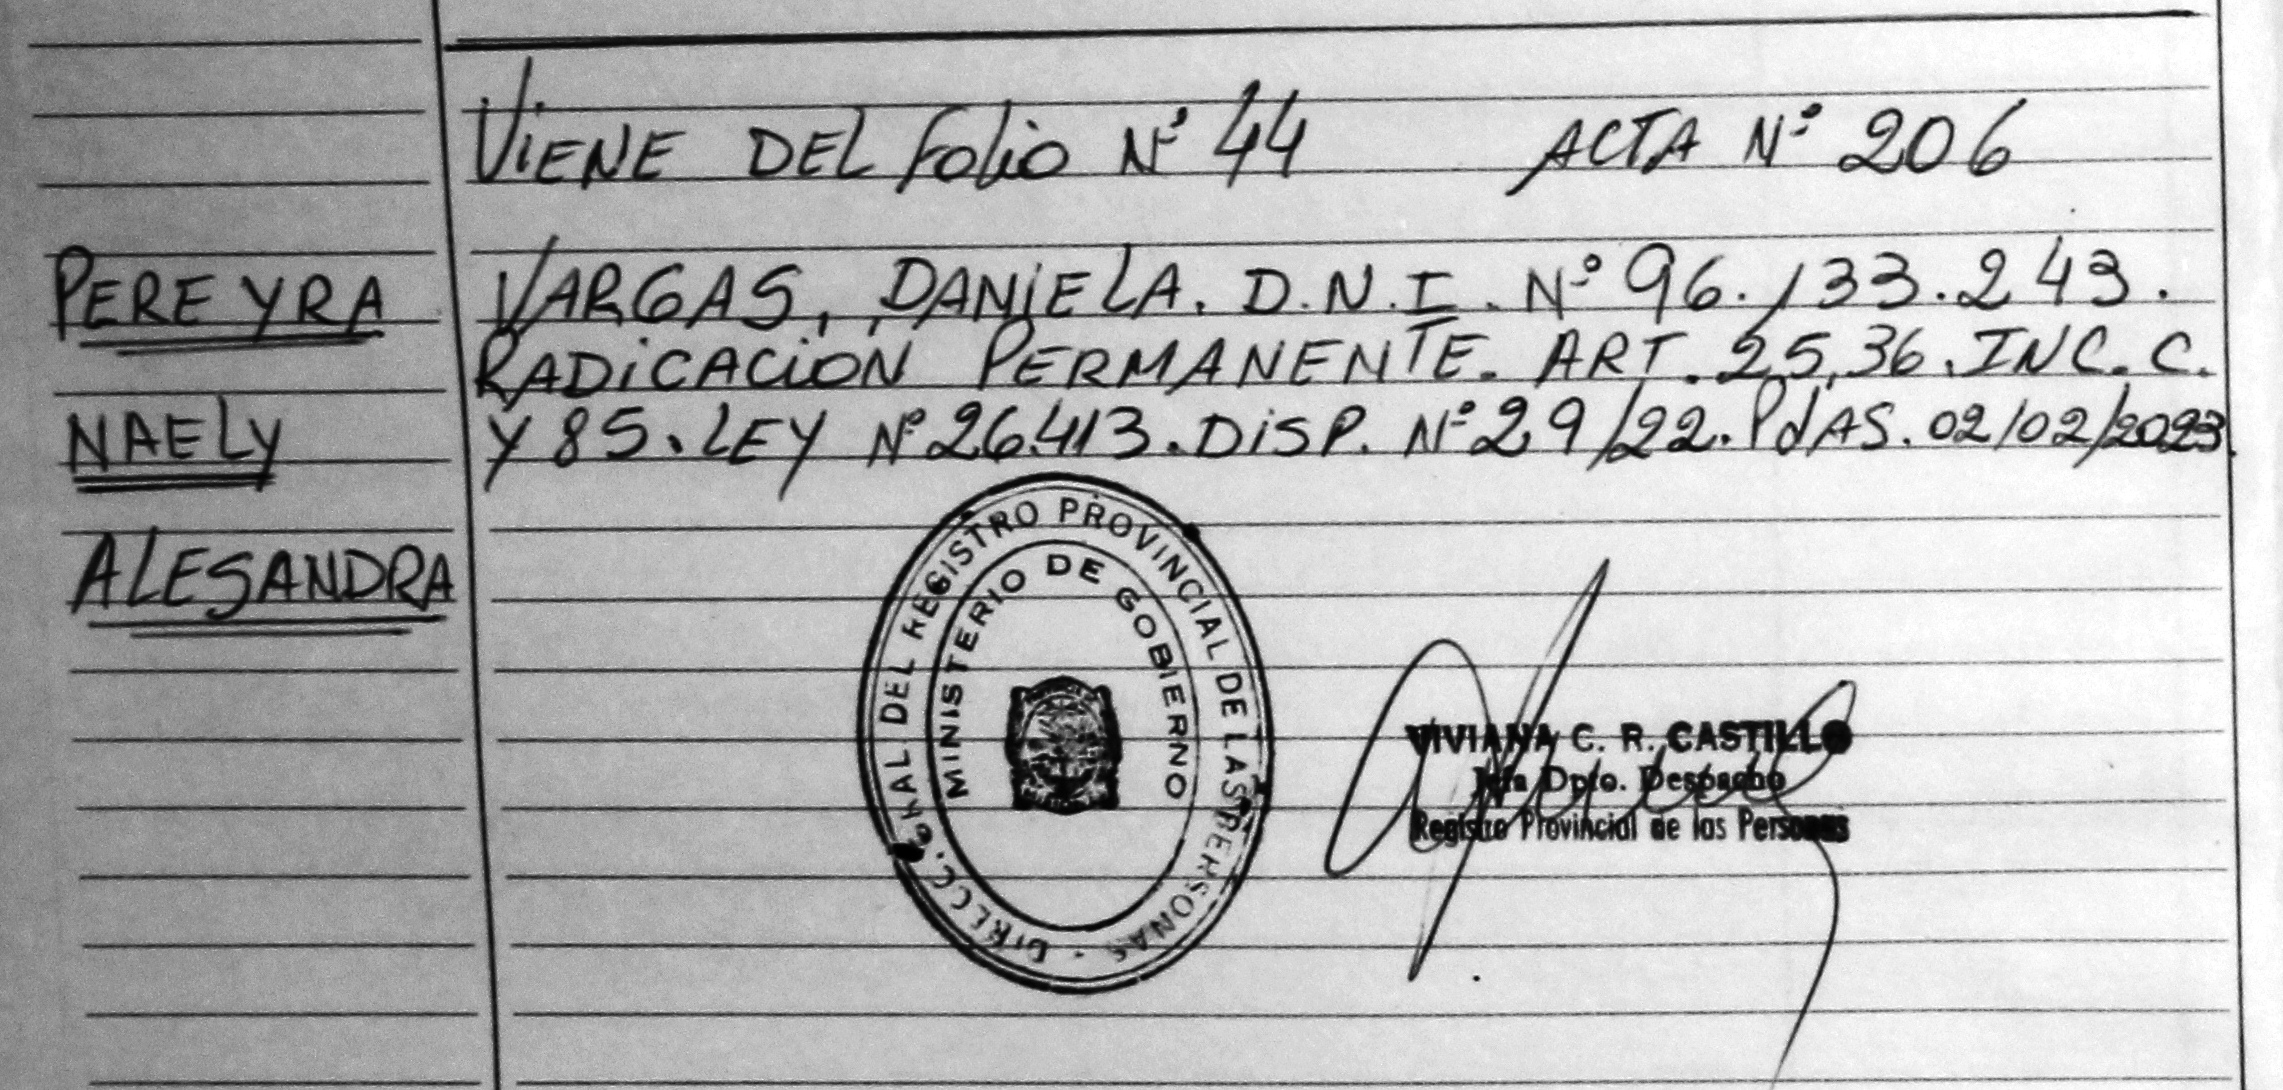 Viene DEL Folio Nº 44 ACTA Nº 206
PEREYRA
NAELY
ALESANDRA
VARGAS, DANIELA. D.N.I. Nº 96.133.243.
RADICACION PERMANENTE. ART. 25,36. INC. C.
Y 85. LEY Nº 26.413. DISP. Nº 29/22. PdAS. 02/02/2023.
DIRECC. GRAL DEL REGISTRO PROVINCIAL DE LAS PERSONAS
MINISTERIO DE GOBIERNO
VIVIANA C. R. CASTILLO
Jefa Dpto. Despacho
Registro Provincial de las Personas